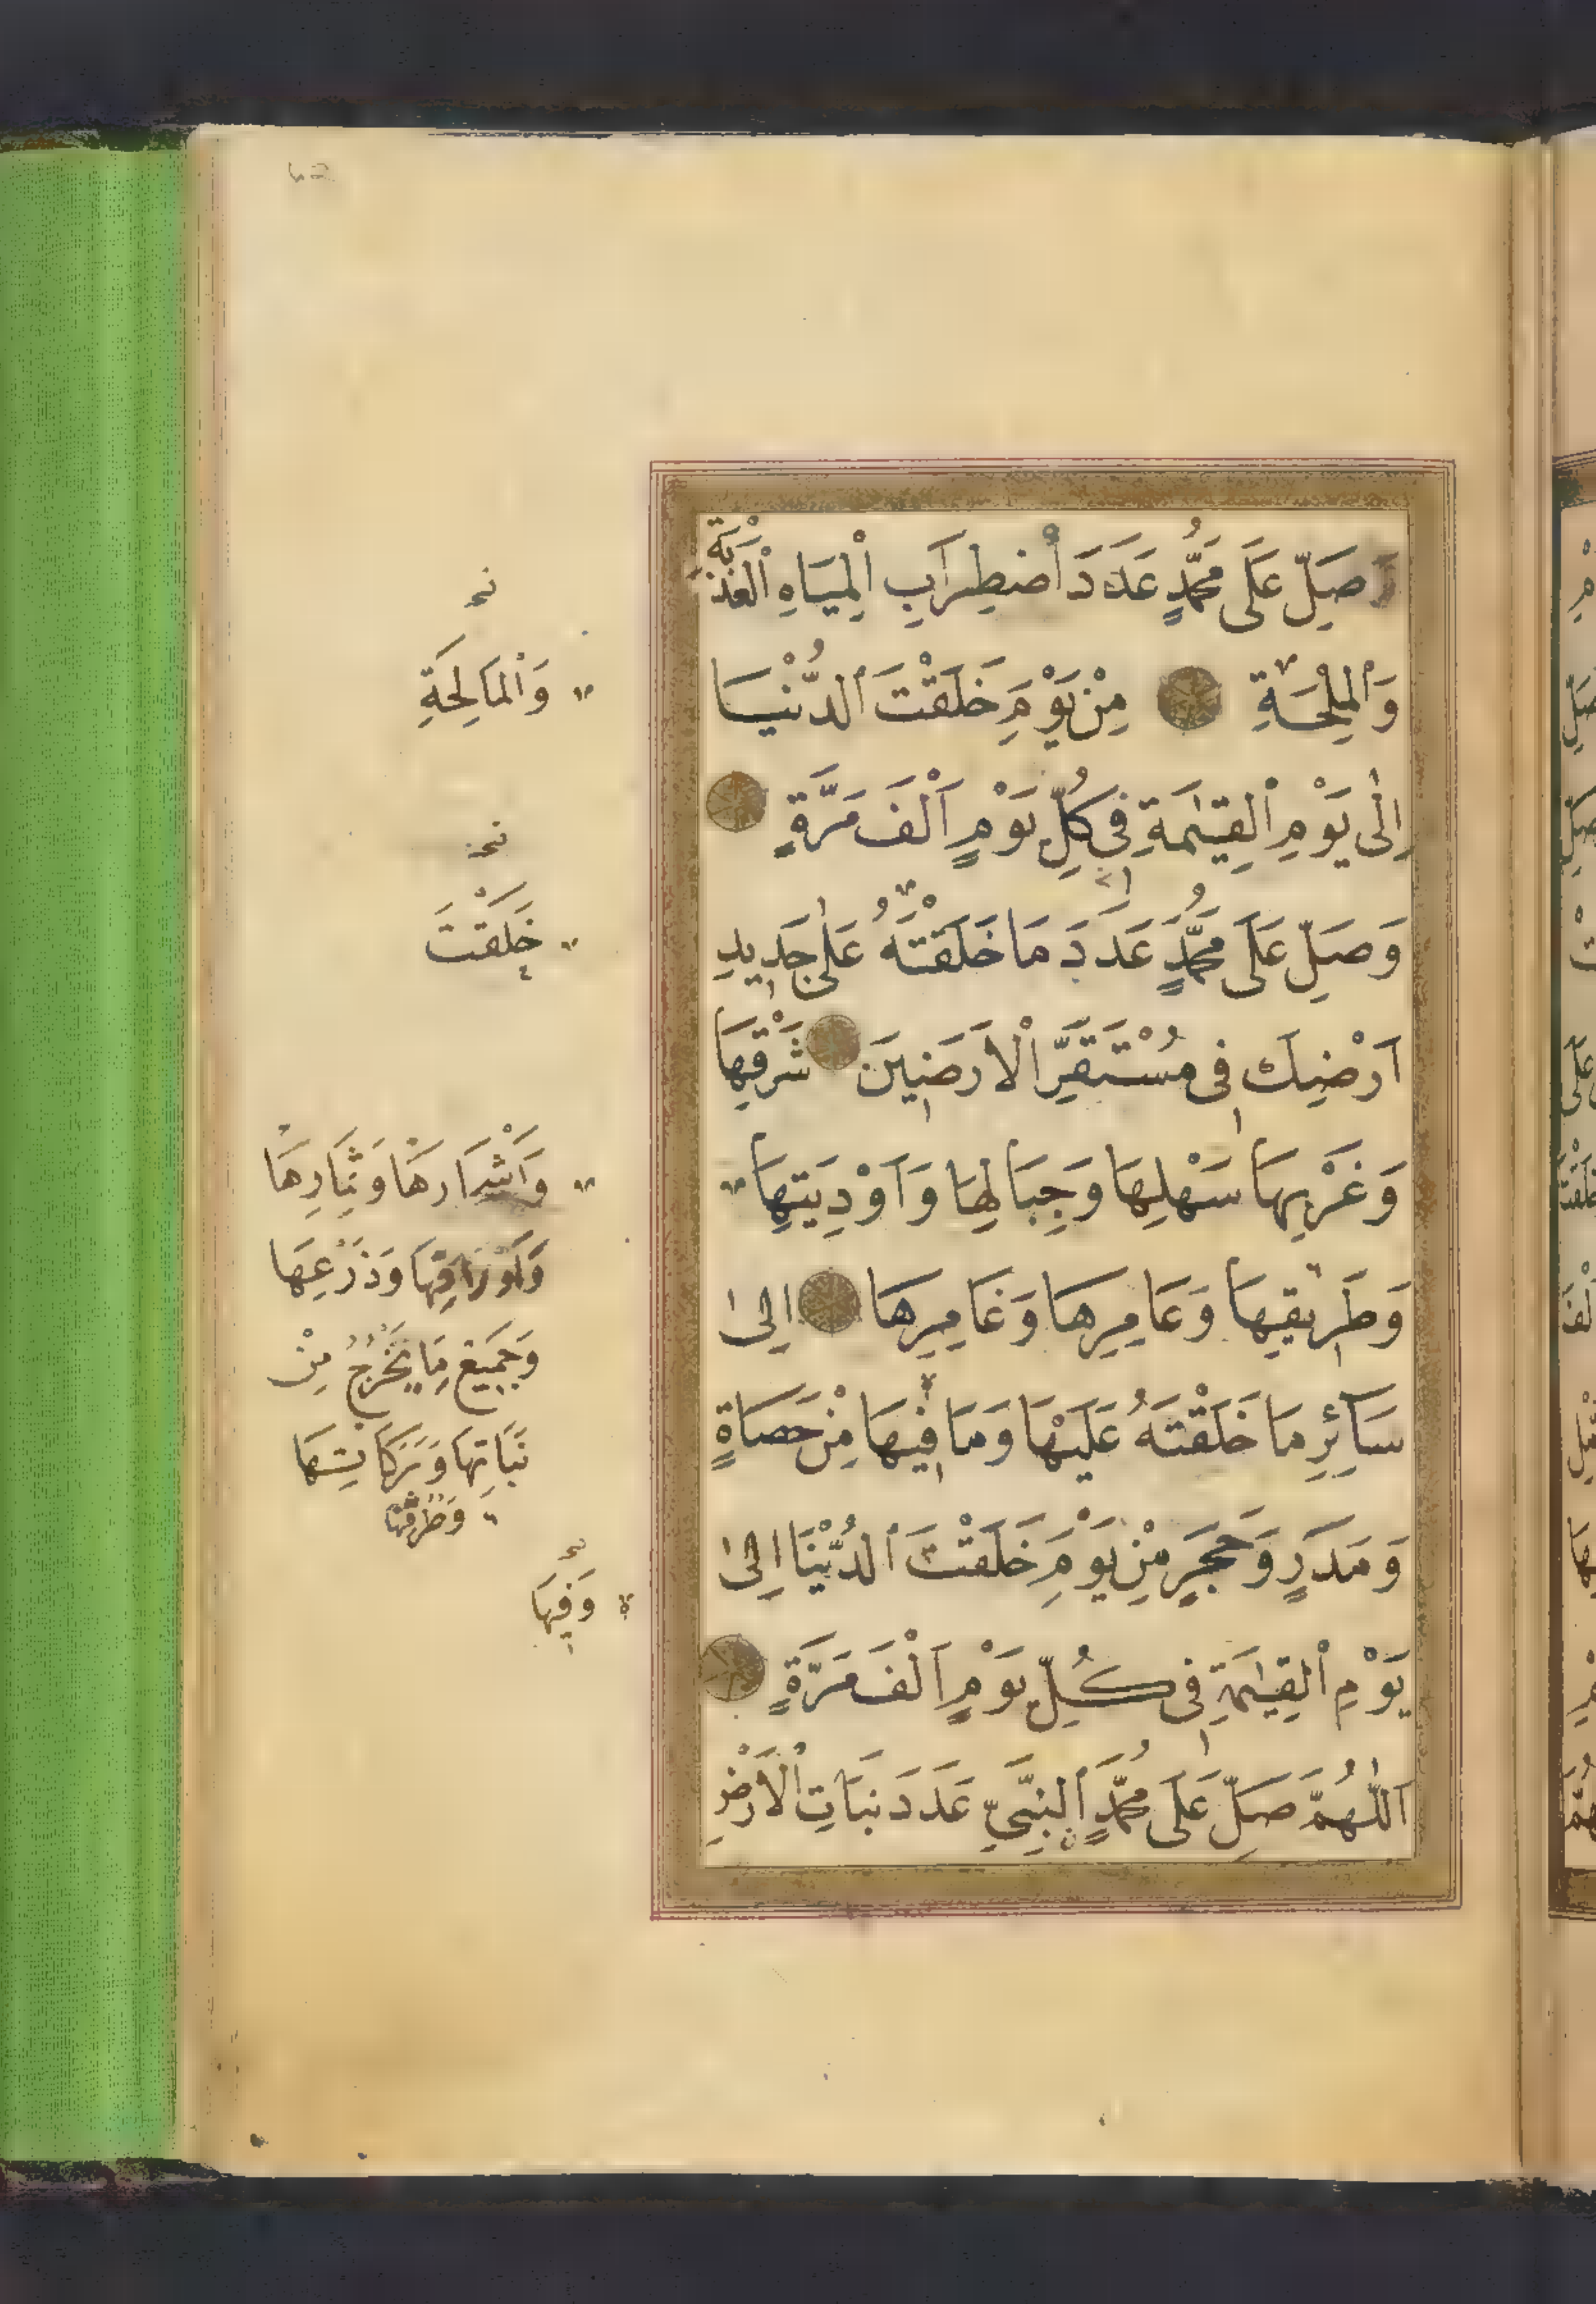 وَصَلِّ عَلَى مُحَمَّدٍ عَدَدَ اَضْطِرَابِ الْمِيَاهِ الْعَذْبَةِ
وَالْمِلْحَةِ مِنْ يَوْمِ خَلَقْتَ الدُّنْيَا
اِلٰى يَوْمِ الْقِيٰمَةِ فِى كُلِّ يَوْمٍ اَلْفَ مَرَّةٍ
وَصَلِّ عَلَى مُحَمَّدٍ عَدَدَ مَا خَلَقْتَهُ عَلٰى جَدِيدِ
اَرْضِكَ فِى مُسْتَقَرِّ الْاَرَضِينَ شَرْقِهَا
وَغَرْبِهَا سَهْلِهَا وَجِبَالِهَا وَاَوْدِيَتِهَا
وَطَرِيقِهَا وَعَامِرِهَا وَغَامِرِهَا اِلٰى
سَآئِرِ مَا خَلَقْتَهُ عَلَيْهَا وَمَا فِيهَا مِنْ حَصَاةٍ
وَمَدَرٍ وَحَجَرٍ مِنْ يَوْمِ خَلَقْتَ الدُّنْيَا اِلٰى
يَوْمِ الْقِيٰمَةِ فِى كُلِّ يَوْمٍ اَلْفَ مَرَّةٍ
اَللّٰهُمَّ صَلِّ عَلَى مُحَمَّدٍ النَّبِىِّ عَدَدَ نَبَاتِ الْاَرْضِ
وَالْمَالِحَةِ
خَلَقْتَ
وَثِمَارِهَا
وَاَوْرَاقِهَا وَزَرْعِهَا
وَجَمِيعِ مَا يَخْرُجُ مِنْ
نَبَاتِهَا وَبَرَكَاتِهَا
وَطُرُقِهَا
وَفِيهَا